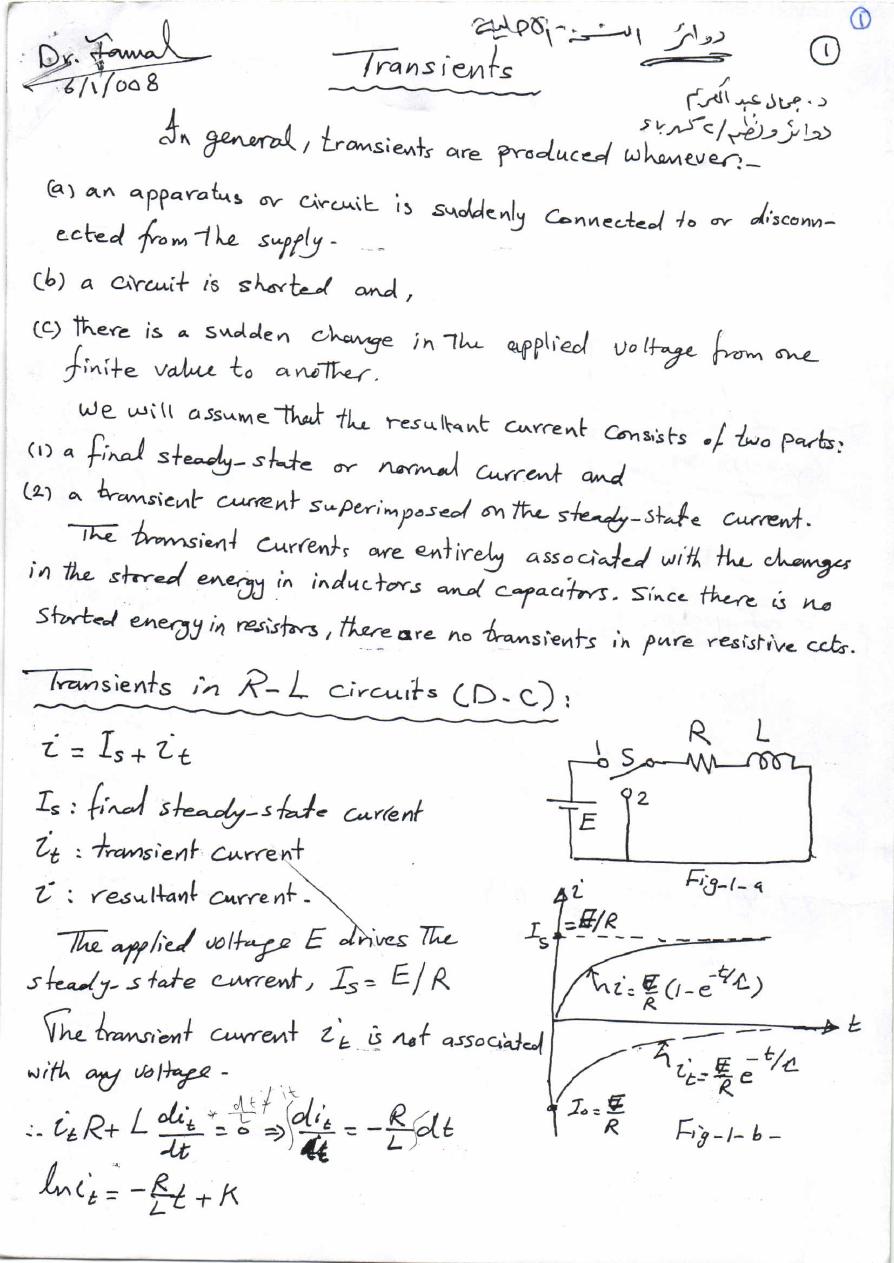 1
دوائر النسخة الاصلية
1
Dr. Jamal
6/1/008
Transients
د. جمال عبد الكريم
دوائر ونظم / كهرباء
In general, transients are produced whenever:-
(a) an apparatus or circuit is suddenly connected to or disconn-
ected from the supply -
(b) a circuit is shorted and,
(c) there is a sudden change in the applied voltage from one
finite value to another.
We will assume that the resultant current consists of two parts:
(1) a final steady-state or normal current and
(2) a transient current superimposed on the steady-state current.
The transient currents are entirely associated with the changes
in the stored energy in inductors and capacitors. Since there is no
Started energy in resistors, there are no transients in pure resistive ccts.
Transients in R-L circuits (D-C):
i = Is + it
Is : final steady-state current
it : transient current
i : resultant current -
R L
1 S
2
E
Fig-1-a
The applied voltage E drives the
steady-state current, Is = E/R
The transient current it is not associated
with any voltage -
∴ it R + L dit/dt = 0 ⇒ ∫ dit/it = -R/L ∫ dt
ln it = -R/L t + K
i
Is = E/R
i = E/R (1-e^-t/λ)
t
it = E/R e^-t/λ
Io = E/R
Fig-1-b-